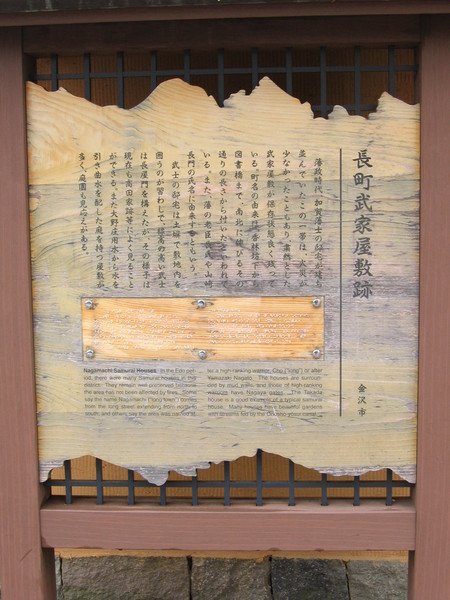 長町武家屋敷跡
金沢市
藩政時代、加賀藩士の邸宅が建ち
並んでいたこの一帯は、火災が
少なかったこともあり、素然とした
武家屋敷が保存状態良く残って
いる。町名の由来は、香林坊下から
図書橋まで、南北に続びるその
通りの長さから付いたといわれて
いる。また、藩の老臣長氏や山崎
長門の氏名に由来すともいう。
武士の邸宅は土塀で敷地内を
囲うのが習わしで、禄高の高い武士
は長屋門を構えたが、その様子は
現在も高田家跡等によく見ること
ができる。また大野庄用水から水を
引き曲水を配した庭を持つ屋敷が
多く、庭園も見応えがある。
Nagamachi Samurai Houses: In the Edo pe-
riod, there were many Samurai houses in this
district. They remain well preserved because
the area has not been affected by fires. Some
say the name Nagamachi ("long town") comes
from the long street extending from north to
south, and others say the area was named af-
ter a high-ranking warrior, Cho ("long") or after
Yamazaki Nagato. The houses are surroun-
ded by mud walls, and those of high-ranking
warriors have Nagaya gates. The Takada
house is a good example of a typical samurai
house. Many houses have beautiful gardens
with streams fed by the Onosho-yosui canal.